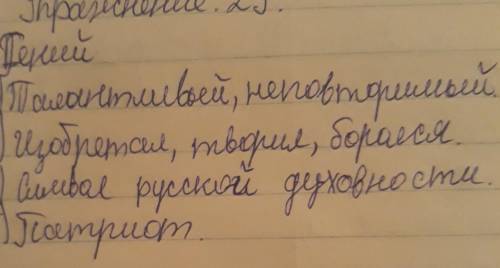 Упражнение. 25.
Гений
Талантливый, неповторимый.
Изобретал, творил, боролся.
Символ русской духовности.
Патриот.